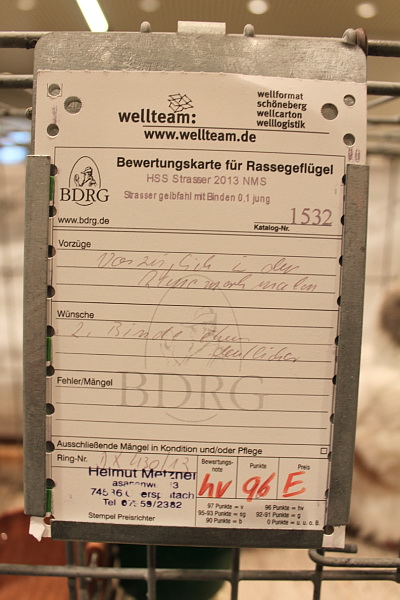 wellteam:
wellformat
schöneberg
wellcarton
welllogistik
www.wellteam.de
BDRG
Bewertungskarte für Rassegeflügel
HSS Strasser 2013 NMS
Strasser gelbfahl mit Binden 0,1 jung
www.bdrg.de
Katalog-Nr. 1532
Vorzüge
Vorzüglich in den
Wünsche
2. Binde
deutlicher
BDRG
Fehler/Mängel
Ausschließende Mängel in Kondition und/oder Pflege
Ring-Nr.
Helmut Metzner
Stempel Preisrichter
Bewertungs-
note
Punkte
Preis
hv 96 E
97 Punkte = v
95-93 Punkte = sg
90 Punkte = b
96 Punkte = hv
92-91 Punkte = g
0 Punkte = u, o. B.